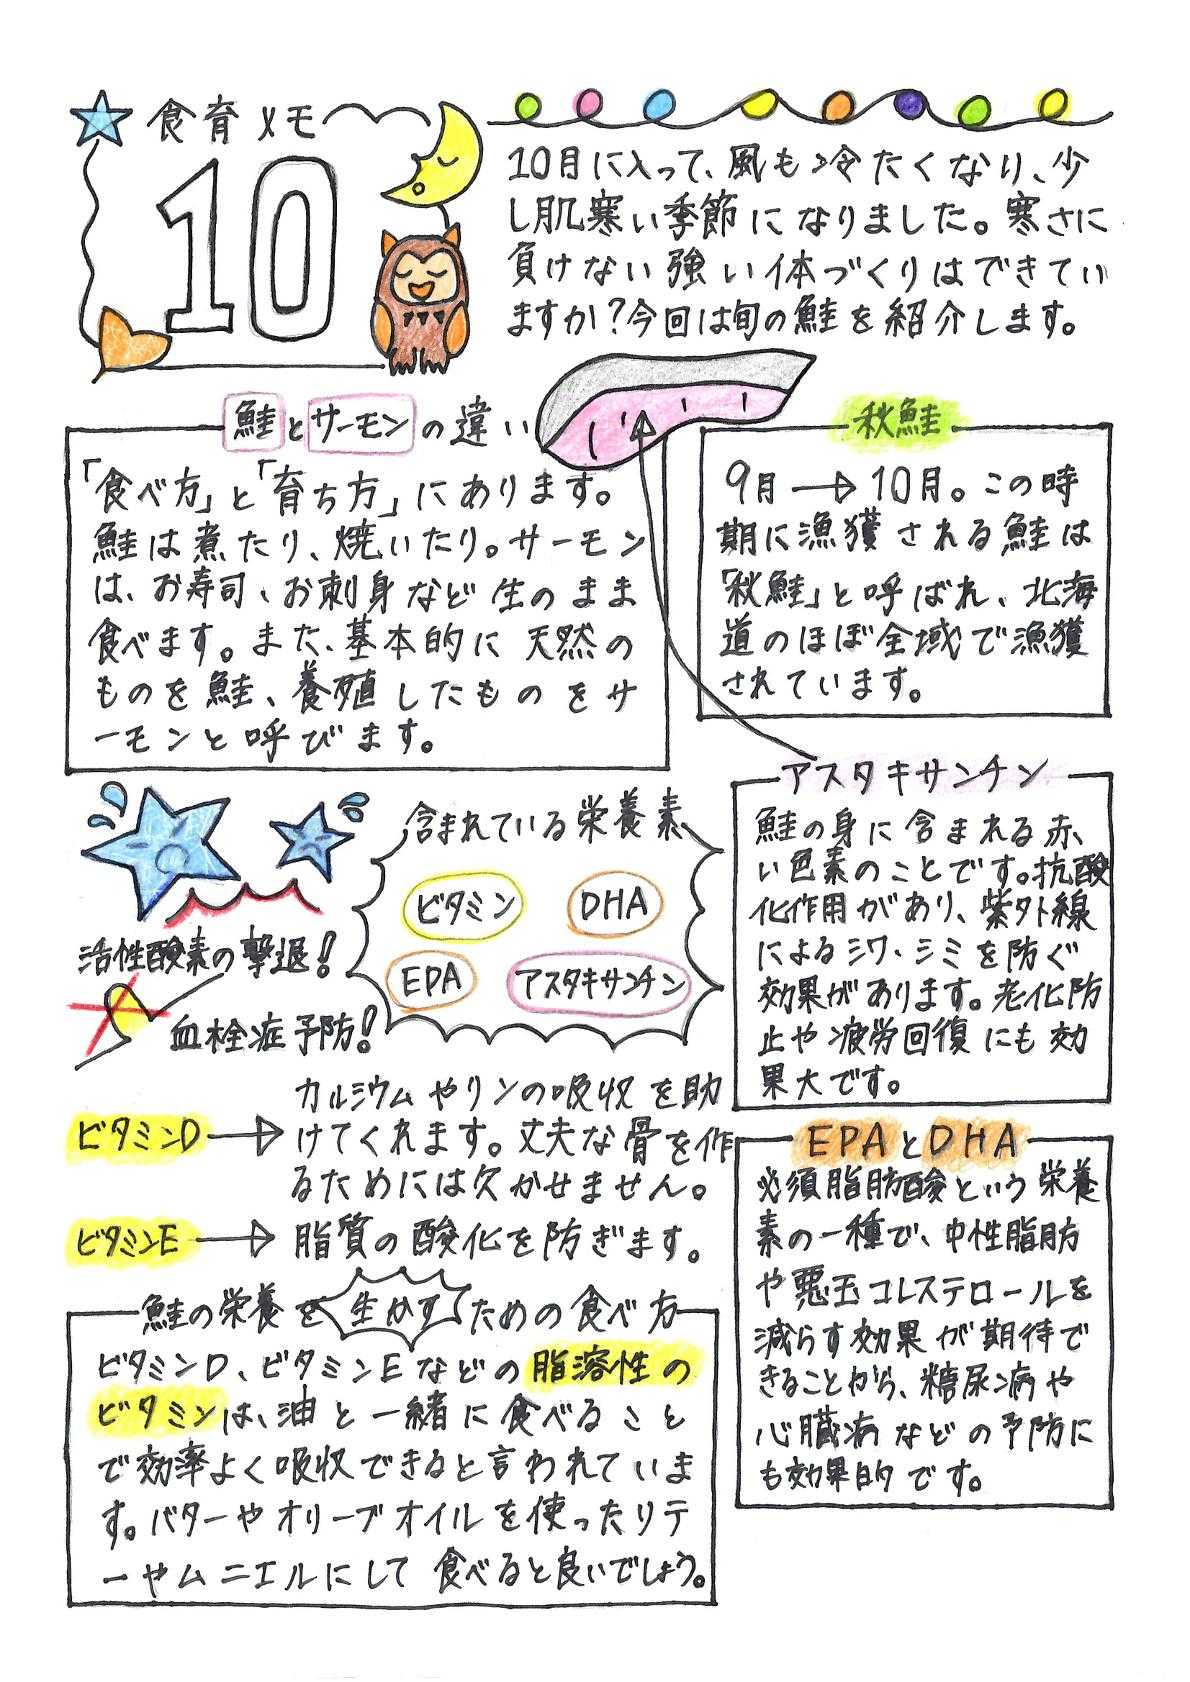 食育メモ
10
10月に入って、風も冷たくなり、少
し肌寒い季節になりました。寒さに
負けない強い体づくりはできてい
ますか?今回は旬の鮭を紹介します。
鮭とサーモンの違い
「食べ方」と「育ち方」にあります。
鮭は煮たり、焼いたり。サーモン
は、お寿司、お刺身など生のまま
食べます。また、基本的に天然の
ものを鮭、養殖したものをサ
ーモンと呼びます。
秋鮭
9月→10月。この時
期に漁獲される鮭は
「秋鮭」と呼ばれ、北海
道のほぼ全域で漁獲
されています。
アスタキサンチン
鮭の身に含まれる赤
い色素のことです。抗酸
化作用があり、紫外線
によるシワ・シミを防ぐ
効果があります。老化防
止や疲労回復にも効
果大です。
含まれている栄養素
ビタミン
DHA
EPA
アスタキサンチン
活性酸素の撃退!
血栓症予防!
ビタミンD→
カルシウムやリンの吸収を助
けてくれます。丈夫な骨を作
るためには欠かせません。
ビタミンE→脂質の酸化を防ぎます。
EPAとDHA
必須脂肪酸という栄養
素の一種で、中性脂肪
や悪玉コレステロールを
減らす効果が期待で
きることから、糖尿病や
心臓病などの予防に
も効果的です。
鮭の栄養を生かすための食べ方
ビタミンD、ビタミンEなどの脂溶性の
ビタミンは、油と一緒に食べること
で効率よく吸収できると言われていま
す。バターやオリーブオイルを使ったソテ
ーやムニエルにして食べると良いでしょう。